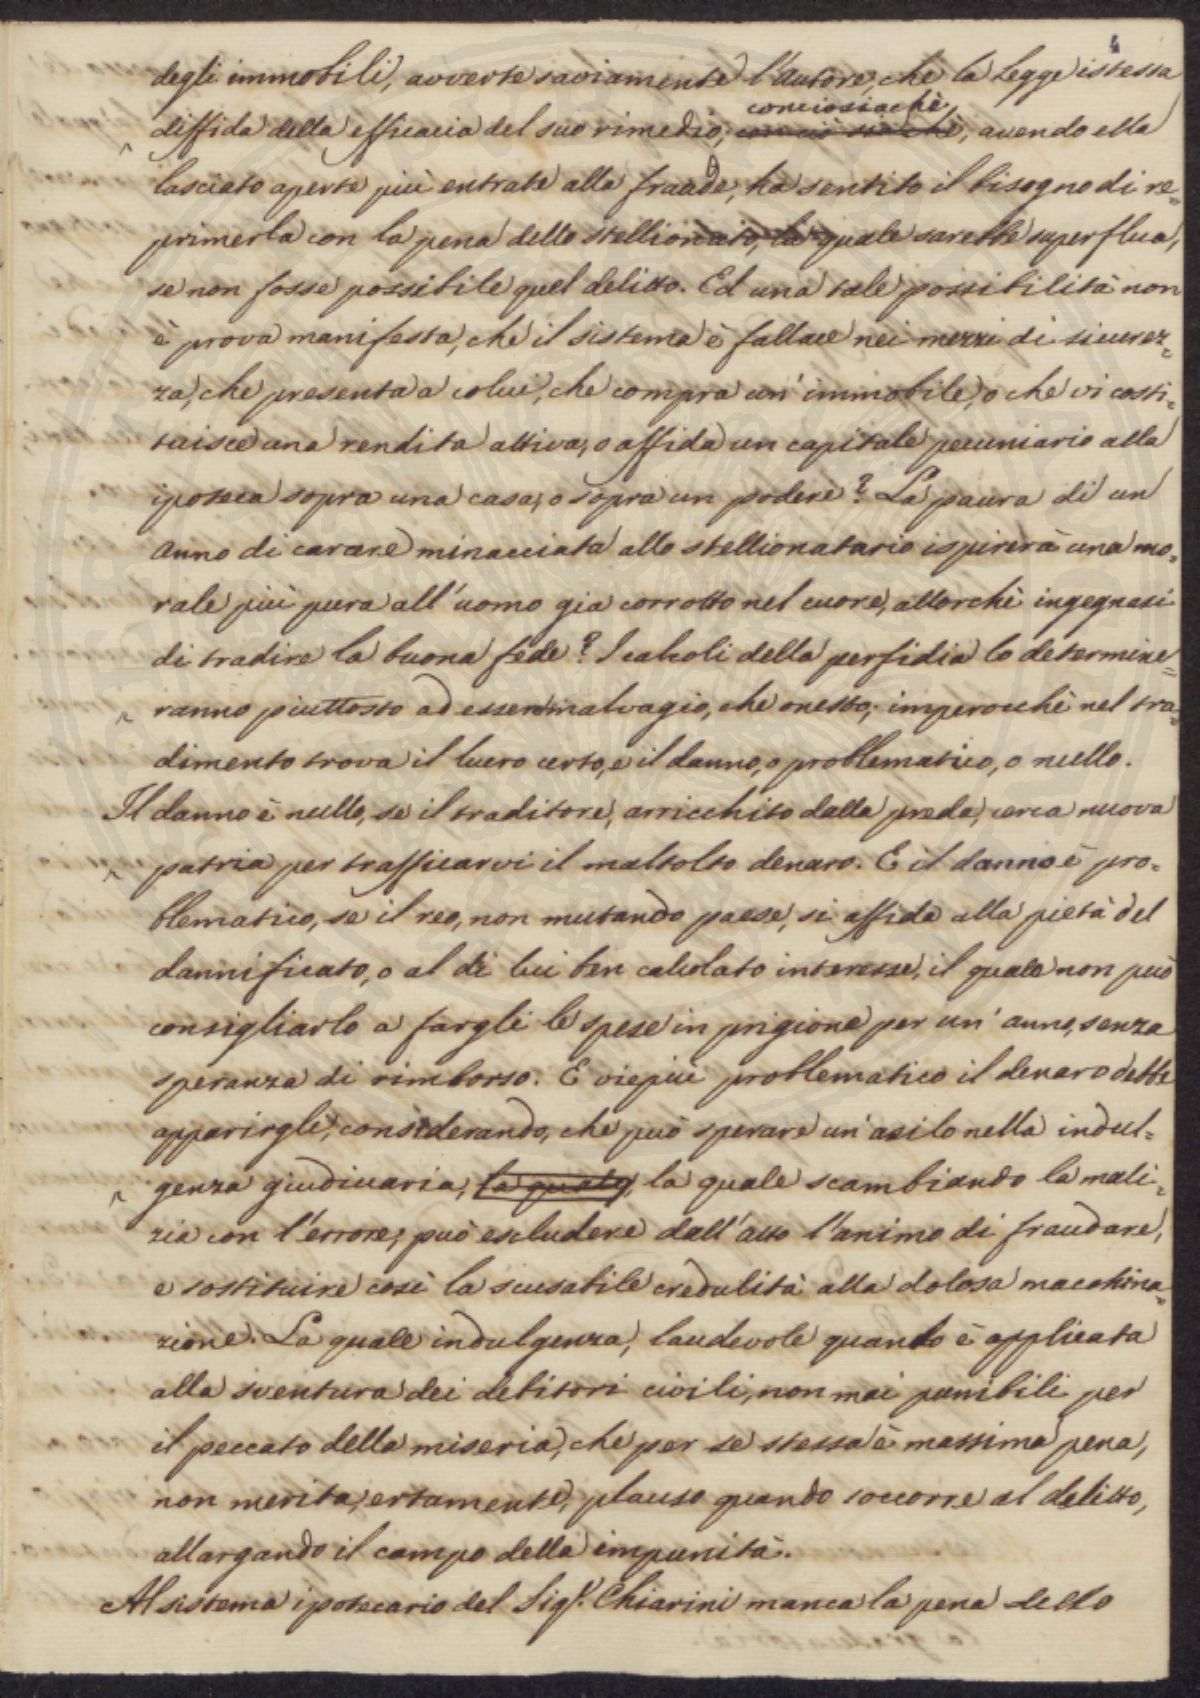 4
degli immobili, avverte saviamente l'Autore, che la Legge istessa
conciosiachè
diffida della efficacia del suo rimedio; con ciò sia chè, avendo ella
lasciato aperte più entrate alla fraude, ha sentito il bisogno di re=
primerla con la pena dello stellionato, la quale sarebbe superflua,
se non fosse possibile quel delitto. Ed una tale possibilità non
è prova manifesta, che il sistema è fallace nei mezzi di sicurez=
za, che presenta a colui, che compra un' immobile, o che vi costi=
tuisce una rendita attiva, o affida un capitale pecuniario alla
ipoteca sopra una casa, o sopra un podere? La paura di un
anno di carcere minacciata allo stellionatario ispirerà una mo=
rale più pura all'uomo gia corrotto nel cuore, allorchè ingegnasi
di tradire la buona fede? I calcoli della perfidia lo determine=
ranno piuttosto ad esser malvagio, che onesto; imperocchè nel tra=
dimento trova il lucro certo, e il danno, o problematico, o nullo.
Il danno è nullo, se il traditore, arricchito dalla preda, cerca nuova
patria per trafficarvi il maltolto denaro. E il danno è pro=
blematico, se il reo, non mutando paese, si affida alla pietà del
dannificato, o al di lui ben calcolato interesse, il quale non può
consigliarlo a fargli le spese in prigione per un' anno, senza
speranza di rimborso. E viepiù problematico il denaro debbe
apparirgli, considerando, che può sperare un'asilo nella indul=
genza giudiciaria, la quale, la quale scambiando la mali=
zia con l'errore; può escludere dall'atto l'animo di fraudare,
e sostituire così la scusabile credulità alla dolosa macchina=
zione. La quale indulgenza, laudevole quando è applicata
alla sventura dei debitori civili, non mai punibili per
il peccato della miseria, che per se stessa è massima pena,
non merita, certamente, plauso quando soccorre al delitto,
allargando il campo della impunità.
Al sistema ipotecario del Sigr. Chiarini manca la pena dello